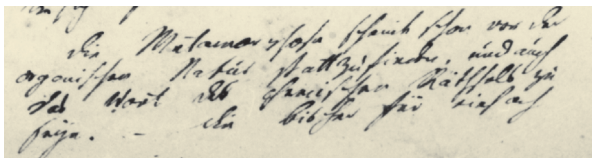 die Metamorphose scheint schon vor der
organischen Natur stattzufinden, und auch
das Wort des chemischen Räthsels zu
seyn. – die bisher für einfach